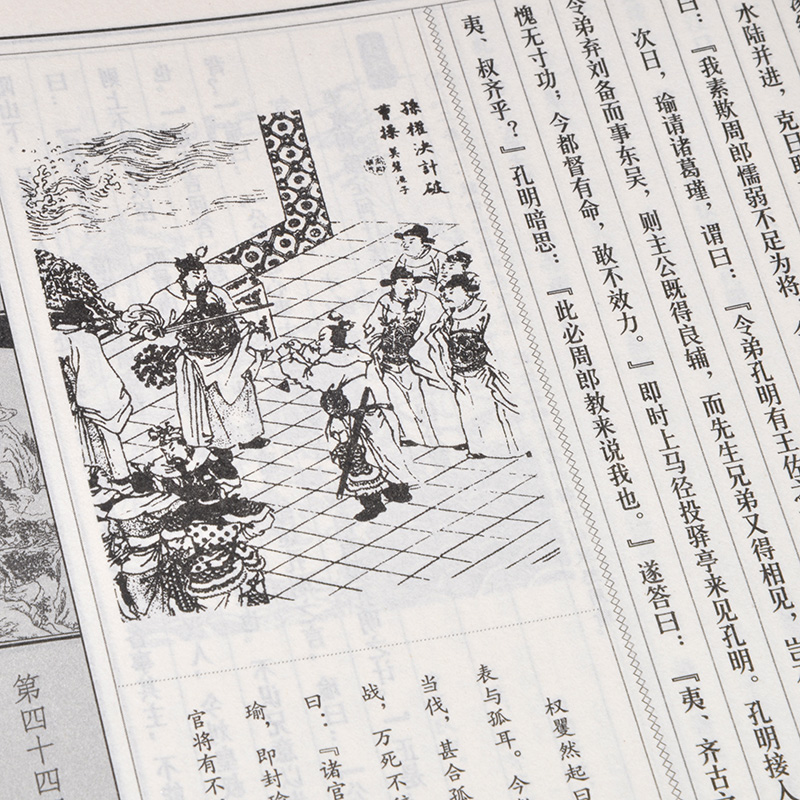 水陆并进，克日
曰：『我素欺周郎懦弱不足为将，
次日，瑜请诸葛瑾，谓曰：『今弟孔明有王佐
令弟弃刘备而事东吴，则主公既得良辅，而先生兄弟又得相见，岂
愧无寸功；今都督有命，敢不效力。』即时上马径投驿亭来见孔明。孔明接入
夷、叔齐乎？』孔明暗思：『此必周郎教来说我也。』遂答曰：『夷、齐古
孫權決計破
曹操
权矍然起曰
表与孤耳。今
当伐，甚合孤
战，万死不
曰：『诸官
瑜，即封
官将有不
第四十四